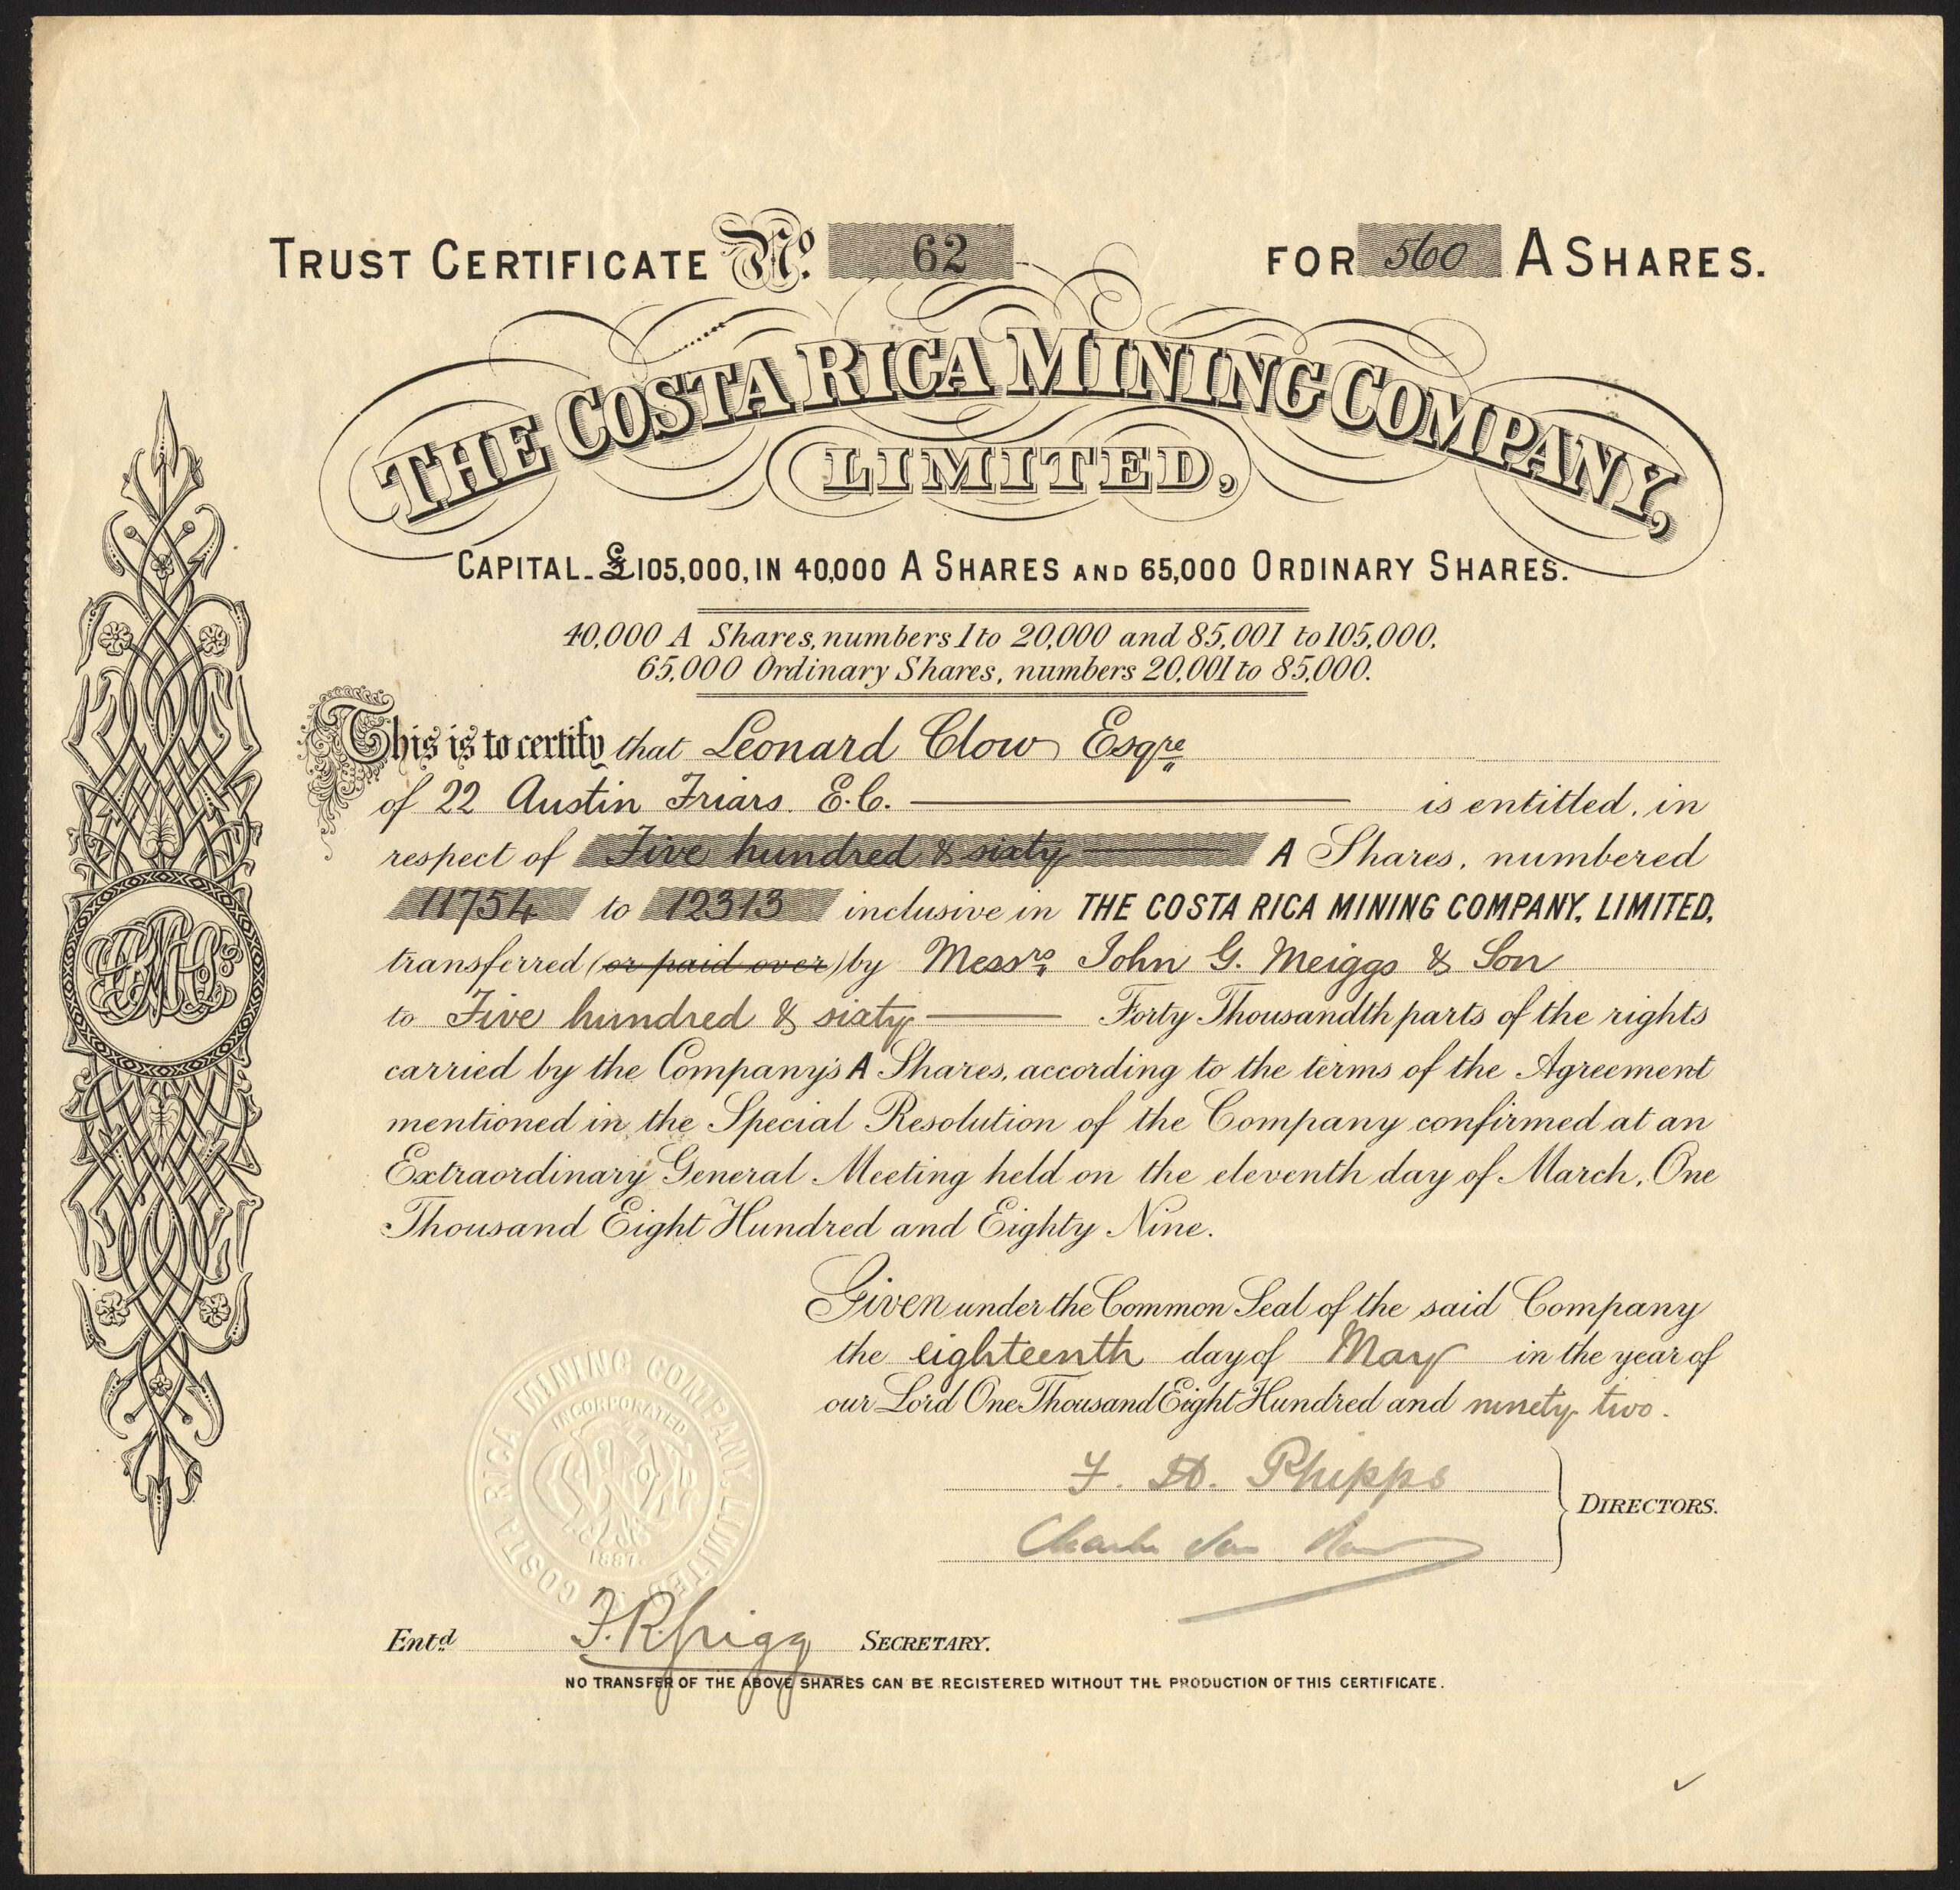 TRUST CERTIFICATE No. 62 FOR 560 A SHARES.
THE COSTA RICA MINING COMPANY,
LIMITED,
CAPITAL_£105,000, IN 40,000 A SHARES AND 65,000 ORDINARY SHARES.
40,000 A Shares, numbers 1 to 20,000 and 85,001 to 105,000.
65,000 Ordinary Shares, numbers 20,001 to 85,000.
This is to certify that Leonard Clow Esqre
of 22 Austin Friars. E.C. is entitled, in
respect of Five hundred & sixty A Shares, numbered
11754 to 12313 inclusive in THE COSTA RICA MINING COMPANY, LIMITED,
transferred (or paid over) by Messrs John G. Meiggs & Son
to Five hundred & sixty Forty Thousandth parts of the rights
carried by the Company's A Shares, according to the terms of the Agreement
mentioned in the Special Resolution of the Company confirmed at an
Extraordinary General Meeting held on the eleventh day of March, One
Thousand Eight Hundred and Eighty Nine.
Given under the Common Seal of the said Company
the eighteenth day of May in the year of
our Lord One Thousand Eight Hundred and ninety two.
COSTA RICA MINING COMPANY, LIMITED
INCORPORATED
1887.
Phipps
DIRECTORS.
Entd
SECRETARY.
NO TRANSFER OF THE ABOVE SHARES CAN BE REGISTERED WITHOUT THE PRODUCTION OF THIS CERTIFICATE.